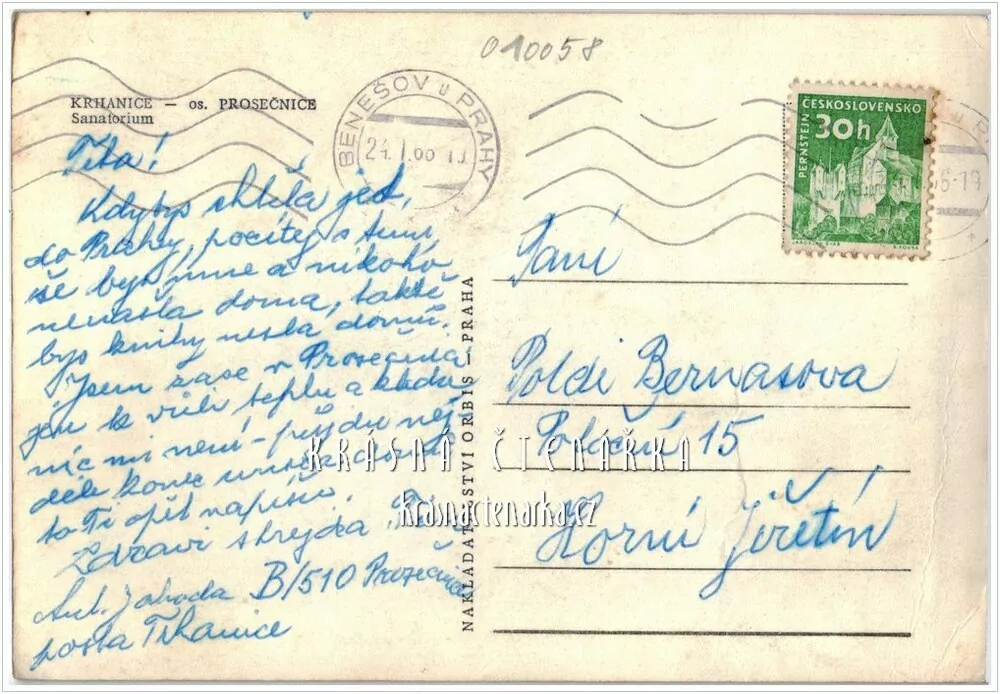 010058
KRHANICE — os. PROSEČNICE
Sanatorium
BENEŠOV u PRAHY
24. I. 66
ČESKOSLOVENSKO
30h
PERNŠTEJN
6-19
Teta!
Kdybys chtěla jed.
do Prahy, počítej s tím
že bys mne a nikoho
nenašla doma, takže
bys knihy nesla domů.
Jsem zase v Prosečnici
jen k vůli teplu a klidu
nic mi není – přijdu nej
déle konce
to Ti opět napíšu.
Zdraví strejda
Ant. Jahoda B/510 Prosečnice
pošta Krhanice
NAKLADATELSTVÍ ORBIS — PRAHA
Paní
Poldi Bernasova
15
Horní Jiřetín
KRÁSNÁ ČTENÁŘKA
krasnactenarka.cz